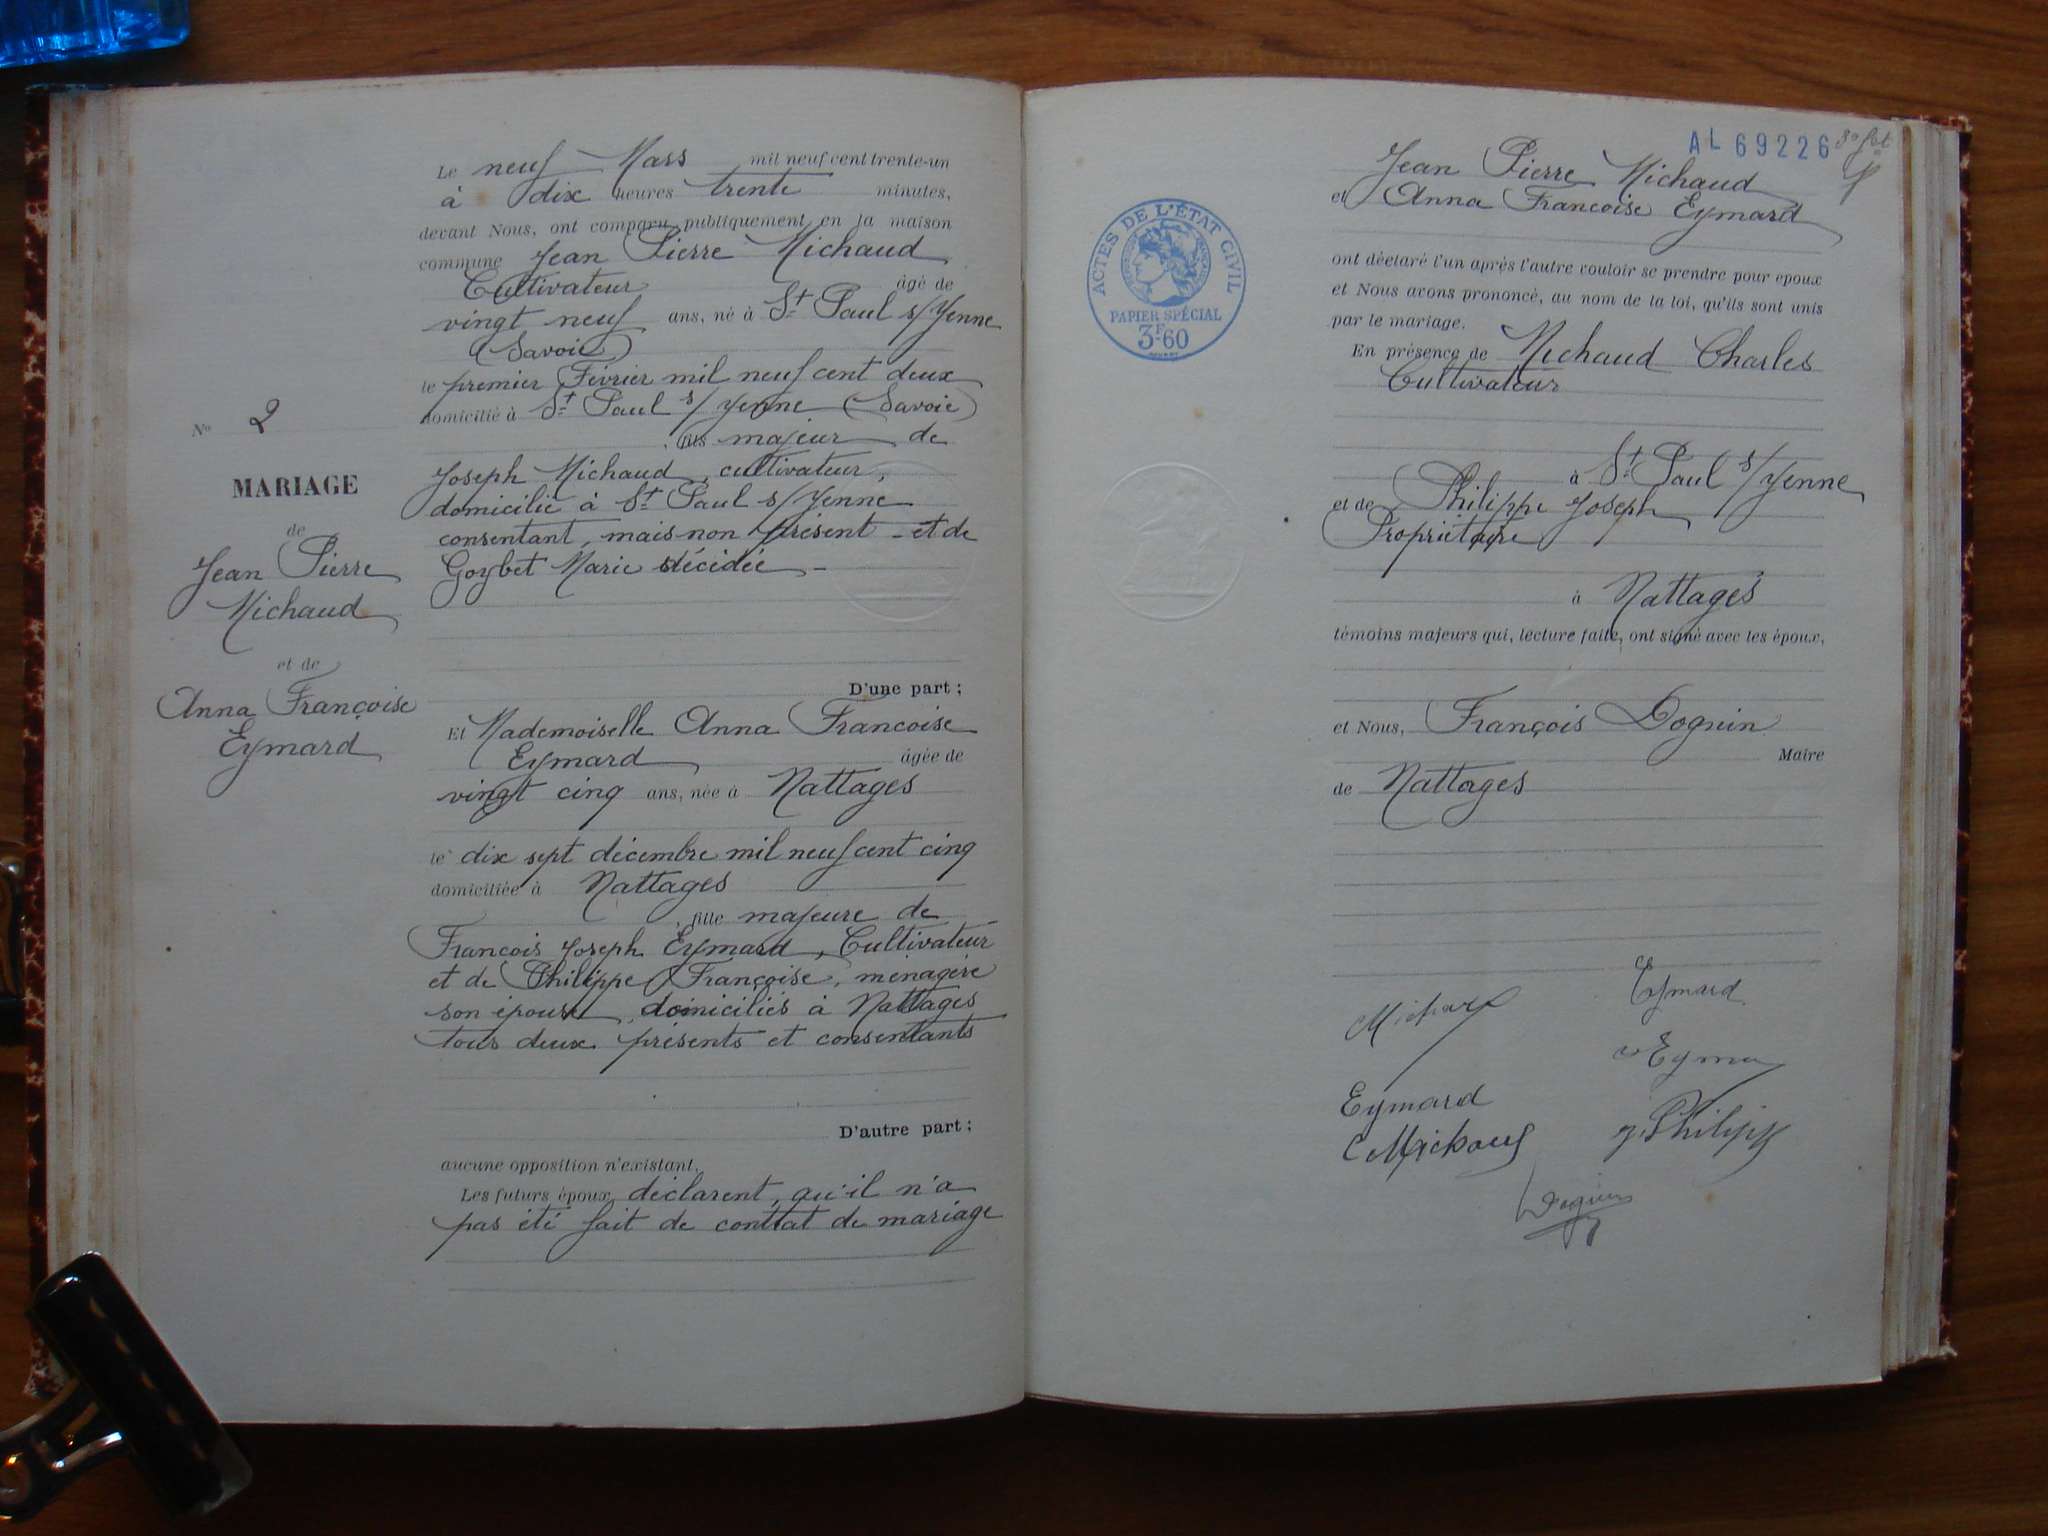 N° 2
MARIAGE
de
Jean Pierre
Michaud
et de
Anna Françoise
Eymard
Le neuf Mars mil neuf cent trente-un
à dix heures trente minutes,
devant Nous, ont comparu publiquement en la maison
commune Jean Pierre Michaud
Cultivateur âgé de
vingt neuf ans, né à St Paul s/Yenne
(Savoie)
le premier Février mil neuf cent deux
domicilié à St Paul s/Yenne (Savoie)
, fils majeur de
Joseph Michaud, cultivateur,
domicilié à St Paul s/Yenne
consentant, mais non présent - et de
Goybet Marie décédée -
D'une part ;
Et Mademoiselle Anna Francoise
Eymard âgée de
vingt cinq ans, née à Nattages
le dix sept décembre mil neuf cent cinq
domiciliée à Nattages
, fille majeure de
François Joseph Eymard, Cultivateur
et de Philippe Françoise, ménagère
son épouse, domiciliés à Nattages
tous deux présents et consentants
D'autre part ;
aucune opposition n'existant.
Les futurs époux déclarent, qu'il n'a
pas été fait de contrat de mariage
AL 69226
ACTES DE L'ÉTAT CIVIL
PAPIER SPÉCIAL
3F.60
Jean Pierre Michaud
et Anna Francoise Eymard
ont déclaré l'un après l'autre vouloir se prendre pour époux
et Nous avons prononcé, au nom de la loi, qu'ils sont unis
par le mariage.
En présence de Michaud Charles
Cultivateur
à St Paul s/Yenne
et de Philippe Joseph
Propriétaire
à Nattages
témoins majeurs qui, lecture faite, ont signé avec les époux,
et Nous, François Dognin
Maire
de Nattages
Eymard
Eymard